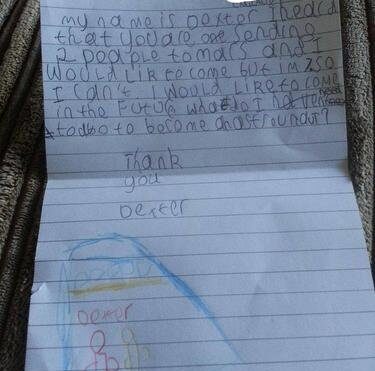 my name is Dexter I heard
that you are are sending
2 people to mars and I
would like to come but im 7 so
I can't I would like to come
in the future what do I need
to do to become an astronaut?
Thank
you
Dexter
Dexter